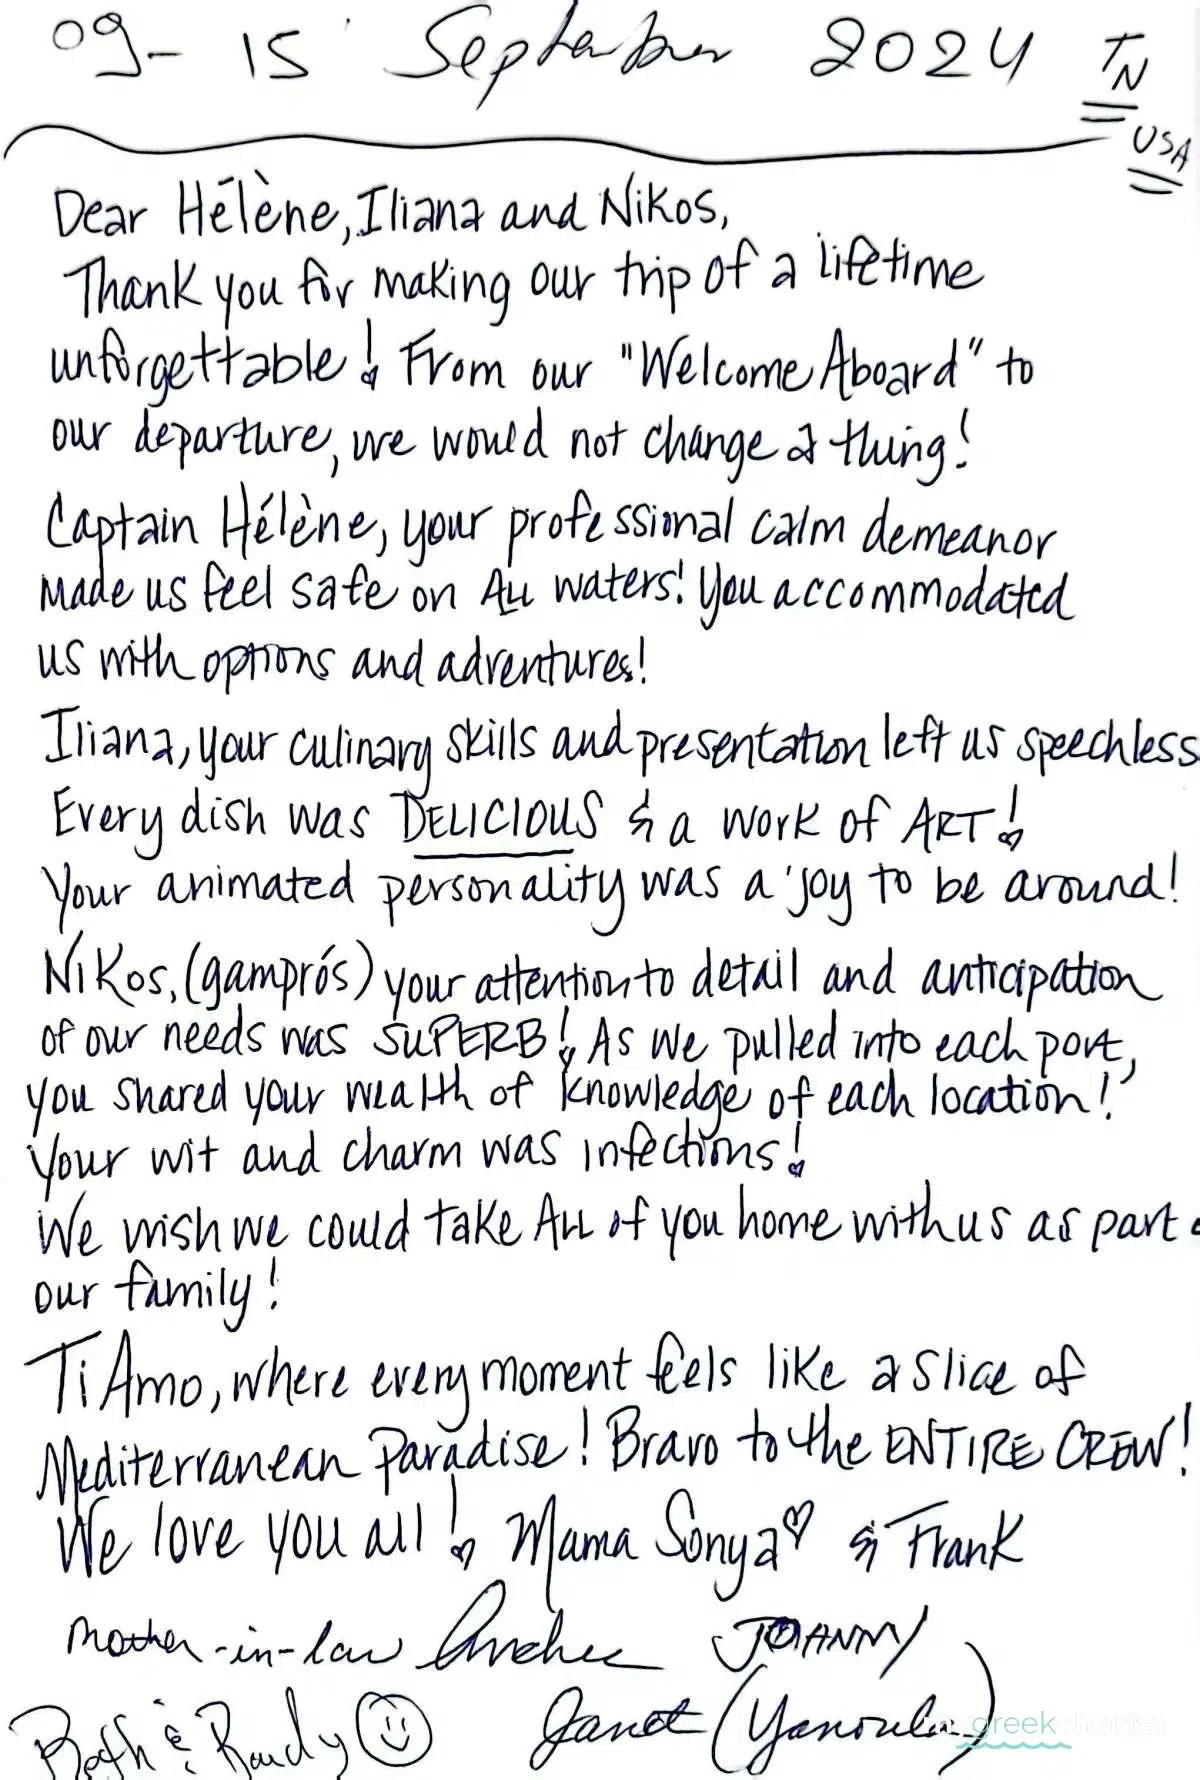 09-15 September 2024 TN
USA
Dear Hélène, Iliana and Nikos,
Thank you for making our trip of a lifetime
unforgettable! From our "Welcome Aboard" to
our departure, we would not change a thing!
Captain Hélène, your professional calm demeanor
made us feel safe on ALL waters! You accommodated
us with options and adventures!
Iliana, your culinary skills and presentation left us speechless
Every dish was DELICIOUS & a work of ART!
Your animated personality was a joy to be around!
Nikos, (gamprós) your attention to detail and anticipation
of our needs was SUPERB! As we pulled into each port,
you shared your wealth of knowledge of each location!
Your wit and charm was infections!
We wish we could take ALL of you home with us as part
our family!
Ti Amo, where every moment feels like a slice of
Mediterranean Paradise! Bravo to the ENTIRE CREW!
We love you all! Mama Sonya & Frank
mother-in-law JOHNNY
Beth & Randy Janet (Yanoula)
greek